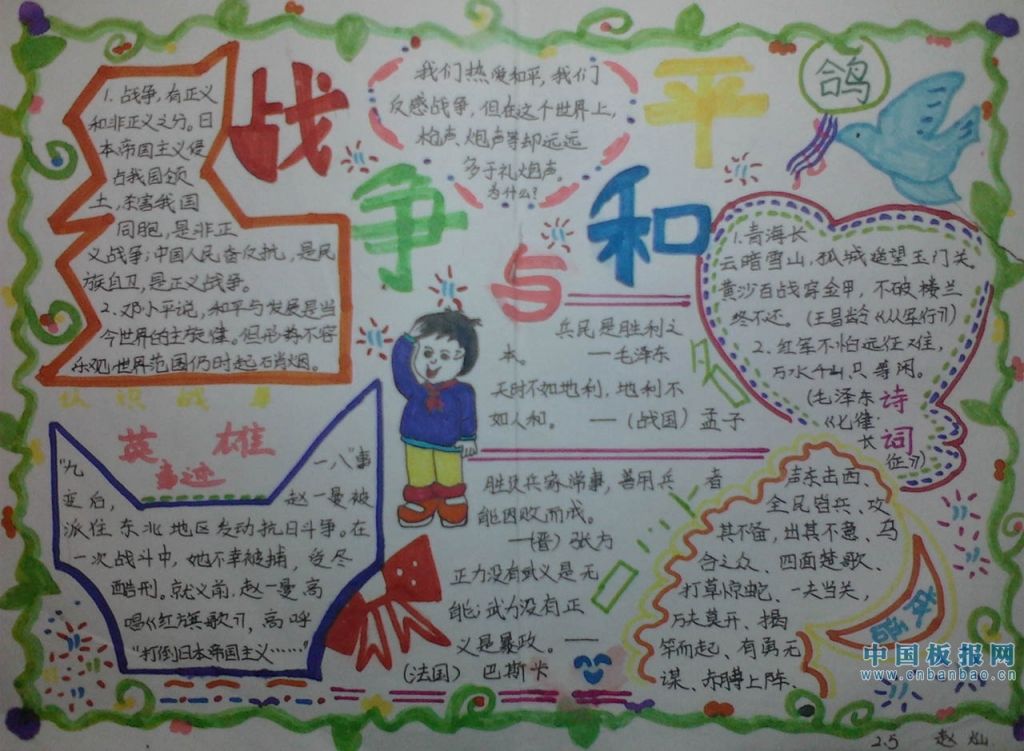 战
争
与
和
平
鸽
1. 战争,有正义
和非正义之分。日
本帝国主义侵
占我国领
土,杀害我国
同胞,是非正
义战争;中国人民奋反抗,是民
族自卫,是正义战争。
2. 邓小平说,和平与发展是当
今世界的主旋律。但形势不容
乐观世界范围仍时起硝烟。
我们热爱和平,我们
反感战争,但在这个世界上,
枪声、炮声等却远远
多于礼炮声。
为什么?
1.青海长
云暗雪山,孤城遥望玉门关。
黄沙百战穿金甲,不破楼兰
终不还。(王昌龄《从军行》)
2.红军不怕远征难,
万水千山只等闲。
(毛泽东
《七律
长
征》)
诗
词
兵民是胜利之
本。 —毛泽东
天时不如地利,地利不
如人和。 —(战国)孟子
胜败兵家常事,善用兵者
能因败而成。
—(晋)张方
正力没有武义是无
能;武力没有正
义是暴政。 —
(法国) 巴斯卡
认识战争
英雄
事迹
“九一八”事
变后, 赵一曼被
派往东北地区发动抗日斗争。在
一次战斗中,她不幸被捕,受尽
酷刑。就义前,赵一曼高
唱《红旗歌》,高呼
“打倒日本帝国主义……”
声东击西、
全民皆兵、攻
其不备,出其不意、乌
合之众、四面楚歌、
打草惊蛇、一夫当关,
万夫莫开、揭
竿而起、有勇无
谋、赤膊上阵、
成语
中国板报网
www.cnbanbao.cn
2.5 赵灿